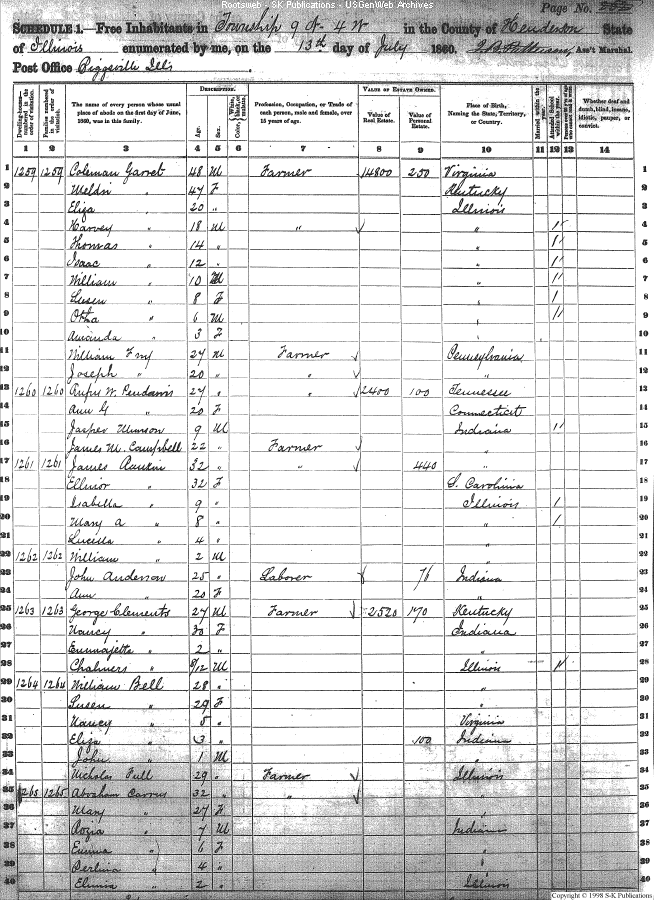 Rootsweb - SK Publications - USGenWeb Archives
Page No.
SCHEDULE 1.—Free Inhabitants in Township 9 N - 4 W in the County of Henderson State
of Illinois enumerated by me, on the 13th day of July 1860. Ass't Marshal.
Post Office Biggsville Ills
Dwelling-houses—numbered in the order of visitation. Families numbered in the order of visitation. The name of every person whose usual place of abode on the first day of June, 1860, was in this family. DESCRIPTION. Age. Sex. White, Color, Profession, Occupation, or Trade of each person, male and female, over 15 years of age. VALUE OF ESTATE OWNED. Value of Real Estate. Value of Personal Estate. Place of Birth, Naming the State, Territory, or Country. Married within the year. Attended School within the year. Whether deaf and dumb, blind, insane, idiotic, pauper, or convict.
1 2 3 4 5 6 7 8 9 10 11 12 13 14
1 1259 1259 Coleman Garret 48 M Farmer 14800 250 Virginia 1
2 47 F Kentucky 2
3 Eliza 20 " Illinois 3
4 Harvey " 18 M " " 4
5 Thomas " 14 " " 5
6 Isaac " 12 " " 6
7 William " 10 M " 7
8 Susen " 8 F " 8
9 Otha " 6 M " 9
10 Amanda " 3 F " 10
11 William Fry 27 M Farmer Pennsylvania 11
12 Joseph " 20 " " " 12
13 1260 1260 Rufus W. 27 " " 2400 100 Tennessee 13
14 Ann G " 20 F Connecticut 14
15 Jasper Munson 9 M Indiana 15
16 James M. Campbell 22 " Farmer " 16
17 1261 1261 James Rankin 32 " " 440 " 17
18 Ellinor " 32 F S. Carolina 18
19 Isabella " 9 " Illinois 1 19
20 Mary A " 8 " " 1 20
21 Lucinda " 4 " " 21
22 1262 1262 William " 2 M " 22
23 John Anderson 25 " Laborer 76 Indiana 23
24 Ann " 20 F " 24
25 1263 1263 George Clements 27 M Farmer 2520 170 Kentucky 25
26 Nancy " 30 F Indiana 26
27 Emmajetta " 2 " " 27
28 Chalmers " M Illinois 28
29 1264 1264 William Bell 28 " " 29
30 Susen " 29 F " 30
31 Nancy " 8 " Virginia 31
32 Eliza " 3 " 100 Indiana 32
33 John " 1 M " 33
34 Nicholas 29 " Farmer Illinois 34
35 1265 1265 Abraham 32 " " " 35
36 Mary " 27 F " 36
37 " 7 M Indiana 37
38 Emma " 6 F " 38
39 Perlina " 4 " " 39
40 " 2 " Illinois 40
Copyright © 1998 S-K Publications